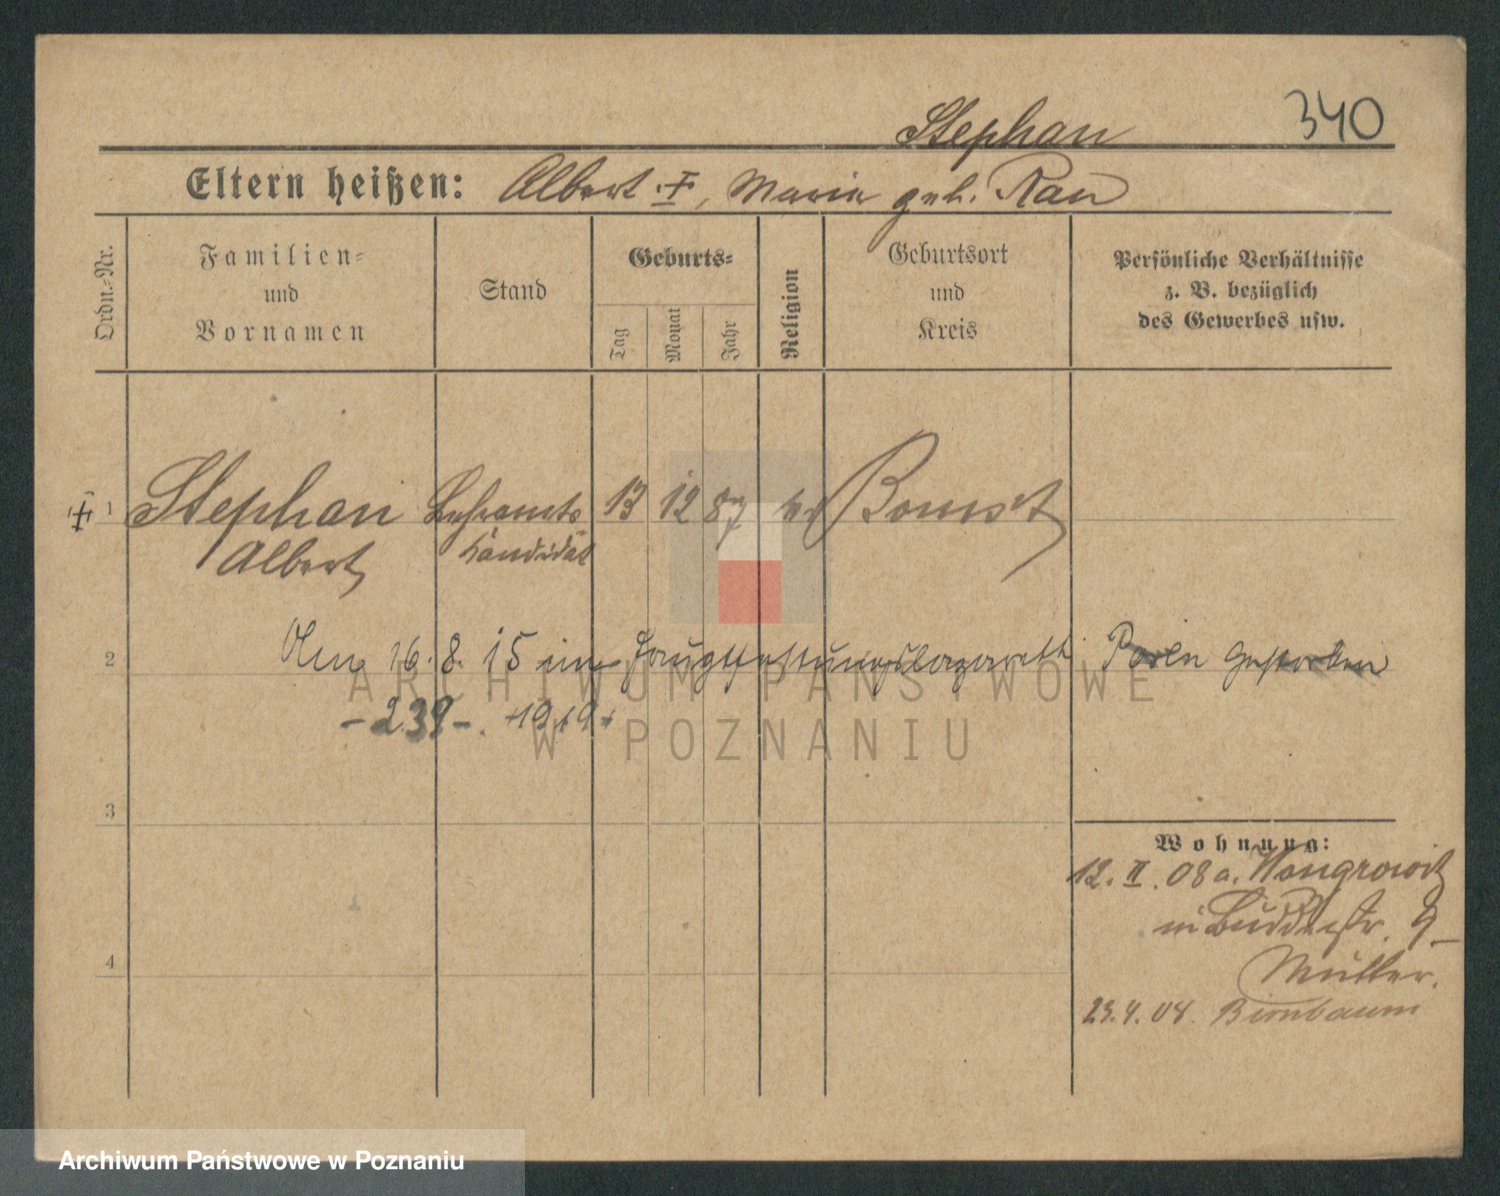 340
Stephan
Eltern heißen: Albert †, Maria geb. Rau
Ordn.-Nr.
Familien-
und
Vornamen
Stand
Geburts-
Tag
Monat
Jahr
Religion
Geburtsort
und
Kreis
Persönliche Verhältnisse
z. B. bezüglich
des Gewerbes usw.
† 1 Stephan Lehramts 13 12 87 Bomst
Albert Kandidat
2 Am 16. 8. 15 im Hauptfestungslazarett Posen gestorben
- 239 -. 1919
3
Wohnung:
12. II. 08 a. Wongrowitz
Buddestr. 9
Mutter.
4
23. 4. 08 Birnbaum
ARCHIWUM PAŃSTWOWE
W POZNANIU
Archiwum Państwowe w Poznaniu